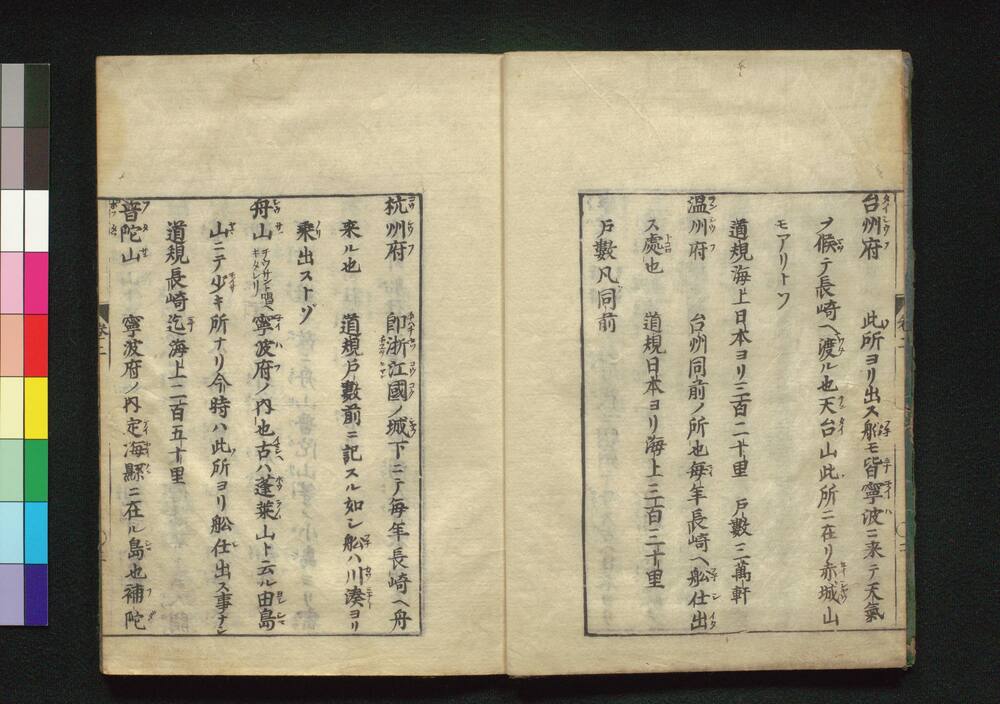 台州府　此所ヨリ出ス船モ皆寧波ニ来テ天氣
ヲ候テ長崎ヘ渡ル也天台山此所ニ在リ赤城山
モアリトソ
道規海上日本ヨリ三百二十里　戸數二萬軒
温州府　台州同前ノ所也毎年長崎ヘ舩仕出
ス處也　道規日本ヨリ海上三百三十里
戸數凡同前
杭州府　即浙江國ノ城下ニテ毎年長崎ヘ舟
来ル也　道規戸數前ニ記スル如シ船ハ川湊ヨリ
乗出ストゾ
舟山　チウサント唱ヘキタレリ　寧波府ノ内也古ハ蓬莱山ト云ル由島
山ニテ少キ所ナリ今時ハ此所ヨリ舩仕出ス事ナシ
道規長崎迄海上二百五十里
普陀山　寧波府ノ内定海縣ニ在ル島也補陀
巻二